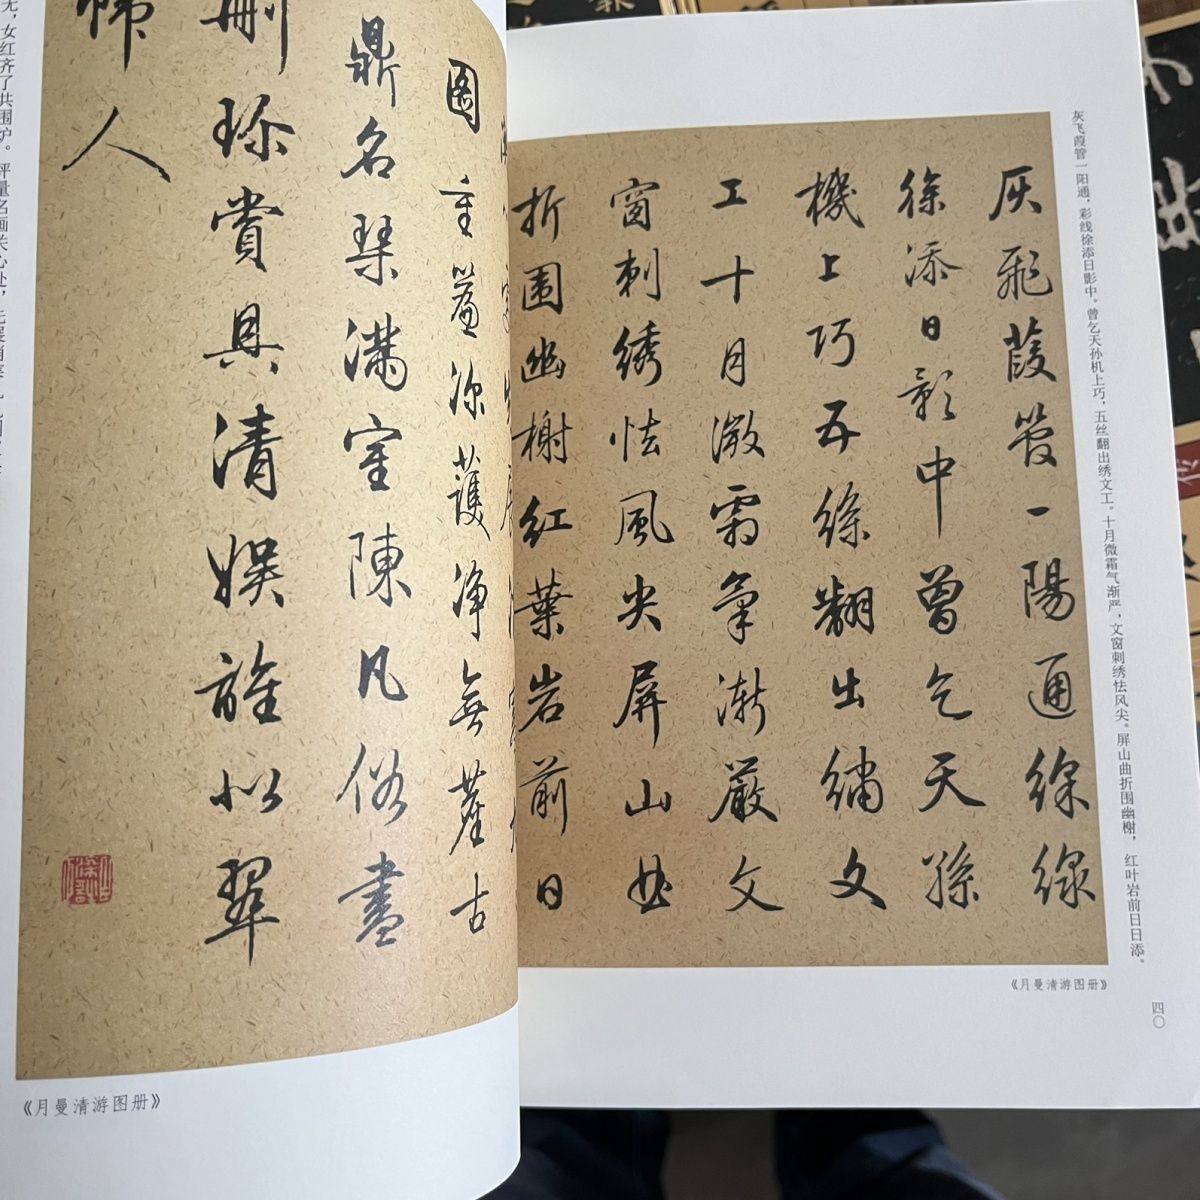 灰飞葭管一阳通，彩线徐添日影中。曾乞天孙机上巧，五丝翻出绣文工。十月微霜气渐严，文窗刺绣怯风尖。屏山曲折围幽榭，红叶岩前日日添。
灰飛葭管一陽通綵線
徐添日影中曾乞天孫
機上巧五絲翻出繡文
工十月微霜氣漸嚴文
窗刺绣怯風尖屏山曲
折围幽榭紅葉岩前日
《月曼清游图册》
四〇
图重簾深護净無塵古
鼎名琹满室陳凡俗盡
删珎賞具清娱誰似翠
帏人
《月曼清游图册》
无，女红齐了共围炉。评量名画关心处，